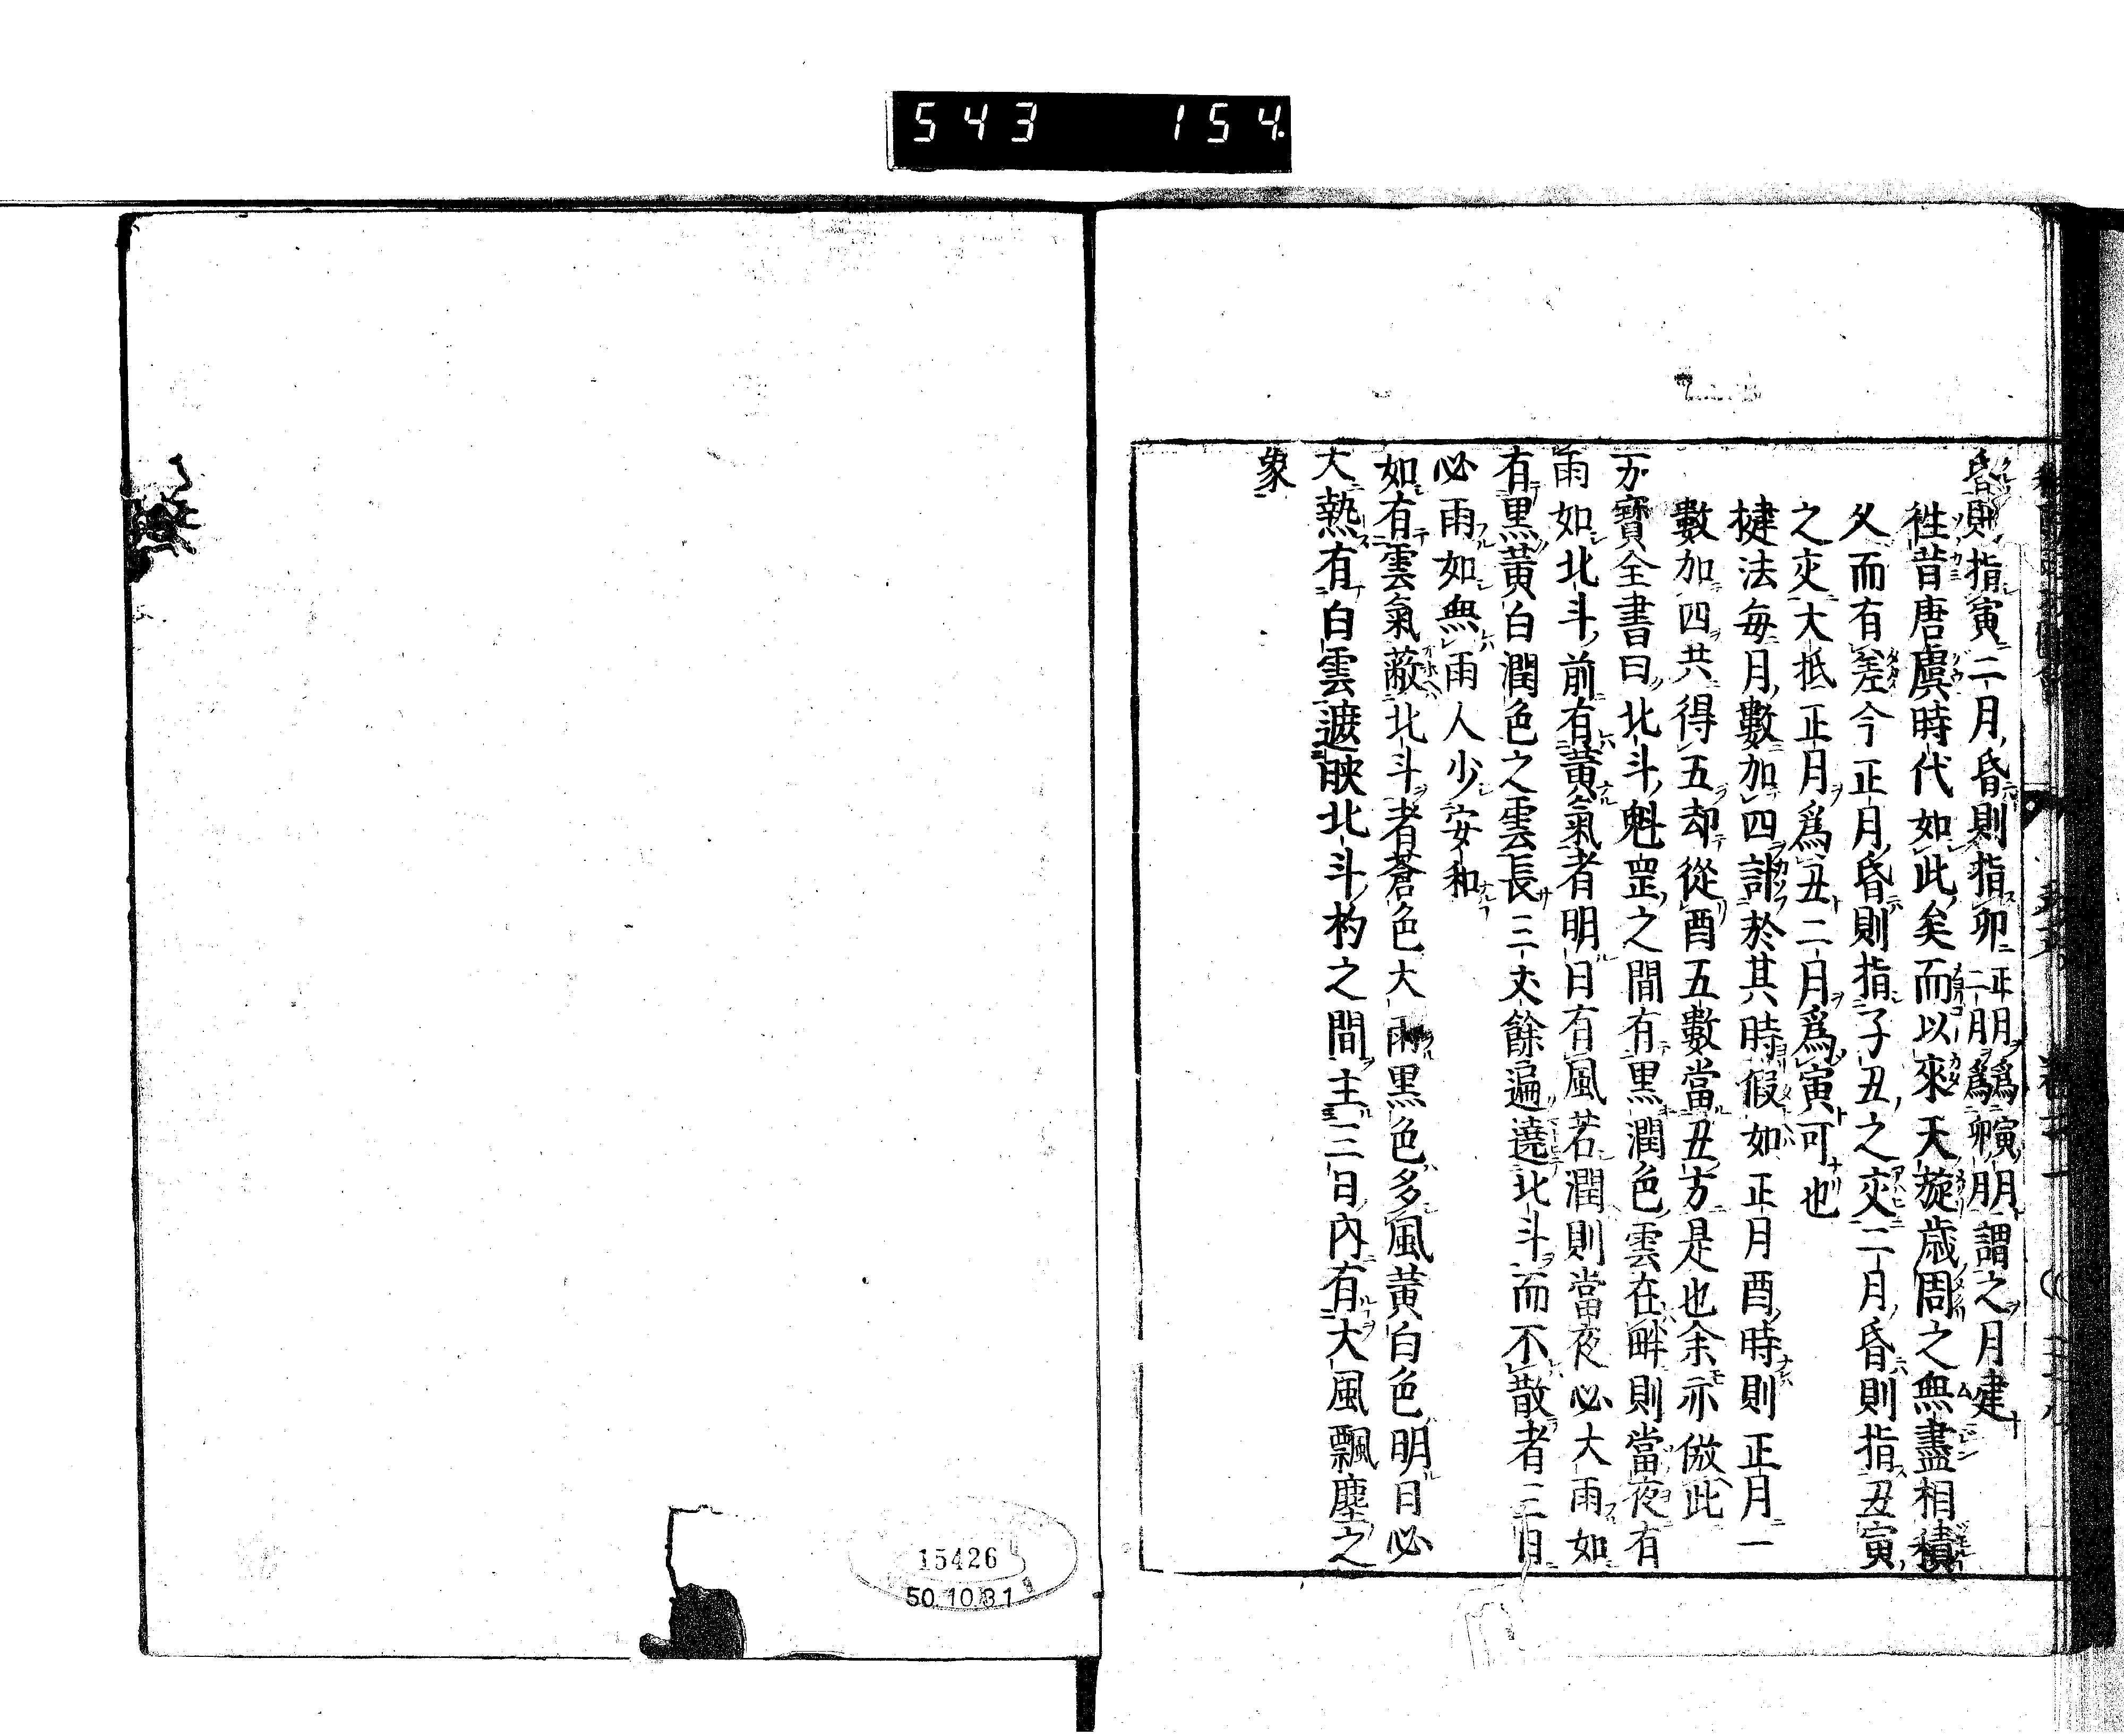 543 154.
昏則指寅二月昏則指卯正月爲寅月二月爲卯月謂之月建
徃昔唐虞時代如此矣而以來天旋歳周之無盡相積
久而有差今正月昏則指子丑之交二月昏則指丑寅
之交大抵正月爲丑二月爲寅可也
揵法毎月數加四計於其時假如正月酉時則正月一
數加四共得五却從酉五數當丑方是也余亦倣此
万寳全書曰北斗魁罡之間有黒潤色雲在畔則當夜有
雨如北斗前有黄氣者明日有風若潤則當夜必大雨如
有黒黄白潤色之雲長三丈餘遍遶北斗而不散者三日
必雨如無雨人少安和
如有雲氣蔽北斗者蒼色大雨黒色多風黄白色明日必
大熱有白雲遮映北斗杓之間主三日内有大風飄塵之
象
15426
50.10.31